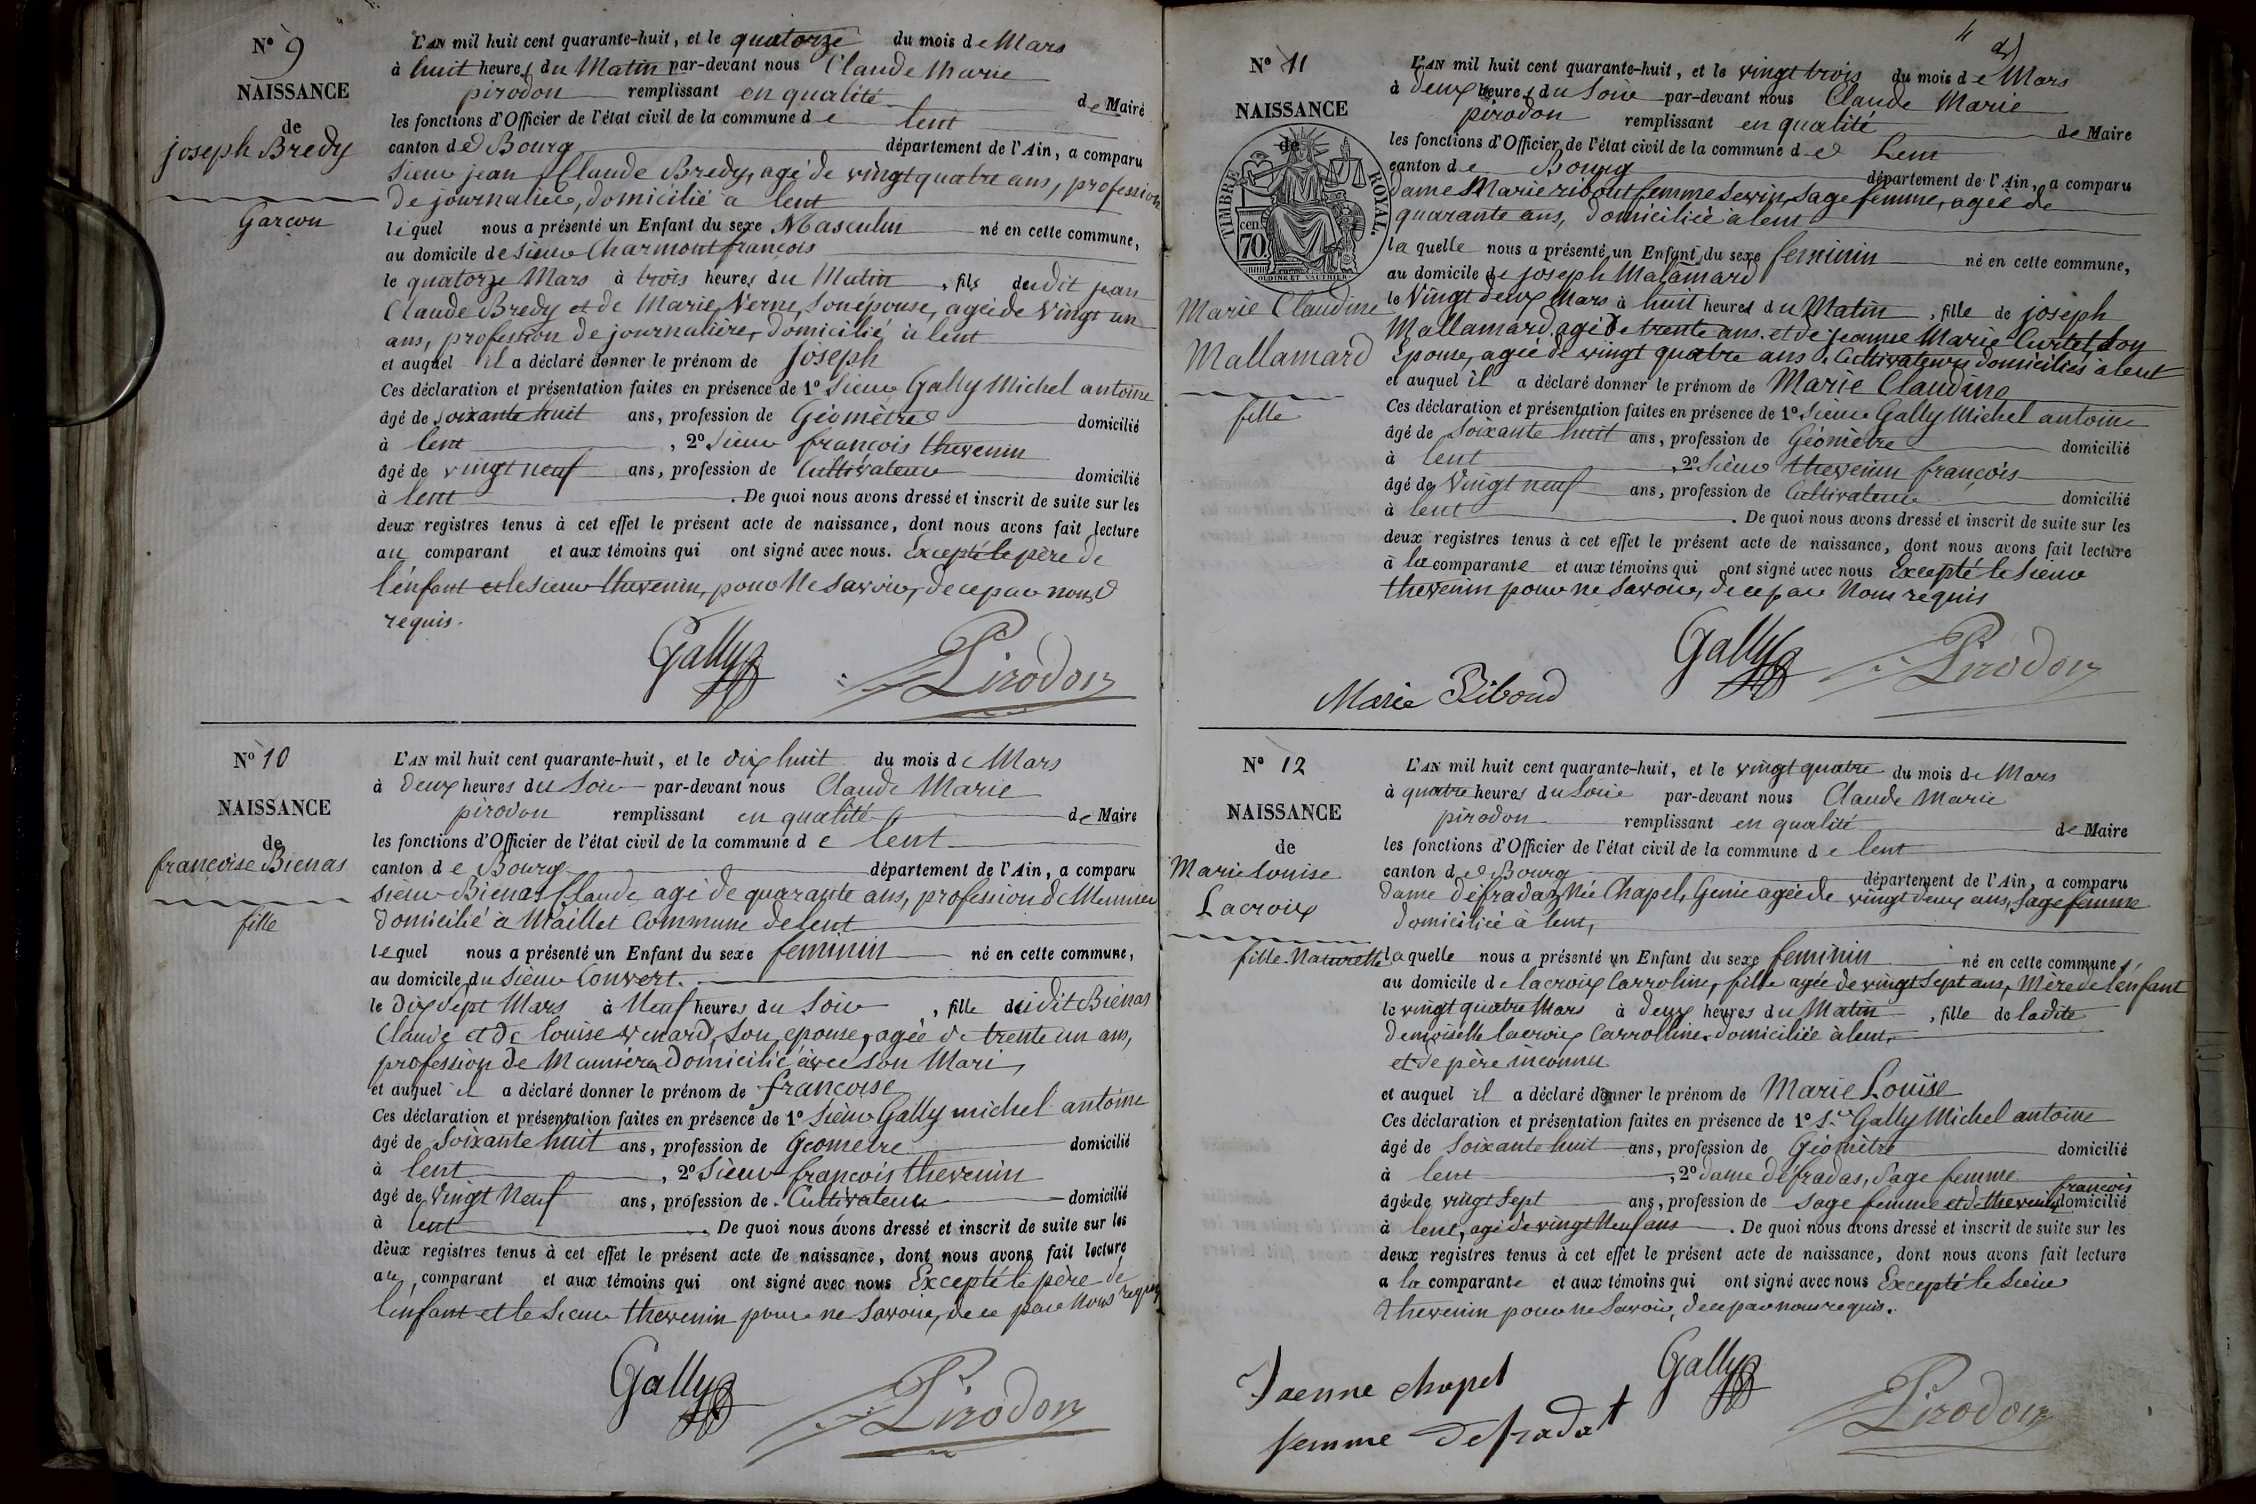 Nº 9
NAISSANCE
de
joseph Bredy
Garcon
L'AN mil huit cent quarante-huit, et le quatorze du mois de Mars
à huit heures du Matin par-devant nous Claude Marie
pirodon remplissant en qualité de Maire
les fonctions d'Officier de l'état civil de la commune de lent
canton de Bourg département de l'Ain, a comparu
Sieur jean Claude Bredy, agé de vingt quatre ans, profession
de journalier, domicilié a lent
lequel nous a présenté un Enfant du sexe Masculin né en cette commune,
au domicile de sieur Charmont françois
le quatorze Mars à trois heures du Matin, fils dudit jean
Claude Bredy et de Marie Verne, son épouse, agée de Vingt un
ans, profession de journalière, domicilié à lent
et auquel il a déclaré donner le prénom de joseph
Ces déclaration et présentation faites en présence de 1º Sieur Gally Michel antoine
âgé de soixante huit ans, profession de Géomètre domicilié
à lent, 2º Sieur françois thevenin
âgé de vingt neuf ans, profession de Cultivateur domicilié
à lent. De quoi nous avons dressé et inscrit de suite sur les
deux registres tenus à cet effet le présent acte de naissance, dont nous avons fait lecture
au comparant et aux témoins qui ont signé avec nous. Excepté le père de
l'enfant et le sieur thevenin, pour ne savoir, de ce par nous
requis.
Gally Pirodon
Nº 10
NAISSANCE
de
francoise Bienas
fille
L'AN mil huit cent quarante-huit, et le dix huit du mois de Mars
à Deux heures du Soir par-devant nous Claude Marie
pirodon remplissant en qualité de Maire
les fonctions d'Officier de l'état civil de la commune de lent
canton de Bourg département de l'Ain, a comparu
sieur Bienas Claude agé de quarante ans, profession de Meunier
domicilié à Maillet Commune de lent
lequel nous a présenté un Enfant du sexe feminin né en cette commune,
au domicile du sieur Convert.
le Dix sept Mars à Neuf heures du Soir, fille dudit Biénas
Claude et de louise venard, son epouse, agée de trente un ans,
profession de Meunière domicilié avec son Mari,
et auquel il a déclaré donner le prénom de francoise
Ces déclaration et présentation faites en présence de 1º Sieur Gally michel antoine
âgé de Soixante huit ans, profession de Geometre domicilié
à lent, 2º Sieur françois thevenin
âgé de Vingt Neuf ans, profession de Cultivateur domicilié
à lent. De quoi nous avons dressé et inscrit de suite sur les
deux registres tenus à cet effet le présent acte de naissance, dont nous avons fait lecture
au comparant et aux témoins qui ont signé avec nous Excepté le père de
l'enfant et le Sieur thevenin pour ne savoir, de ce par nous requis
Gally Pirodon
4
Nº 11
NAISSANCE
de
TIMBRE ROYAL.
70 cen.
Marie Claudine
Mallamard
fille
L'AN mil huit cent quarante-huit, et le vingt trois du mois de Mars
à Deux heures du Soir par-devant nous Claude Marie
pirodon remplissant en qualité de Maire
les fonctions d'Officier de l'état civil de la commune de Lent
canton de Bourg département de l'Ain, a comparu
dame Marie ribout femme Sevrin, Sage femme, agée de
quarante ans, domiciliée à lent
la quelle nous a présenté un Enfant du sexe feminin né en cette commune,
au domicile de joseph Malamard
le Vingt deux Mars à huit heures du Matin, fille de joseph
Mallamard, agé de trente ans et de jeanne Marie Curtet, son
Epouse, agée de vingt quatre ans, Cultivateurs domiciliés à lent
et auquel il a déclaré donner le prénom de Marie Claudine
Ces déclaration et présentation faites en présence de 1º Sieur Gally Michel antoine
âgé de Soixante huit ans, profession de Géomètre domicilié
à lent, 2º Sieur thevenin françois
âgé de Vingt neuf ans, profession de Cultivateur domicilié
à lent. De quoi nous avons dressé et inscrit de suite sur les
deux registres tenus à cet effet le présent acte de naissance, dont nous avons fait lecture
à la comparante et aux témoins qui ont signé avec nous Excepté le Sieur
thevenin pour ne savoir, de ce par Nous requis
Gally Pirodon
Marie Riboud
Nº 12
NAISSANCE
de
Marie louise
Lacroix
fille Naturelle
L'AN mil huit cent quarante-huit, et le vingt quatre du mois de Mars
à quatre heures du Soir par-devant nous Claude Marie
pirodon remplissant en qualité de Maire
les fonctions d'Officier de l'état civil de la commune de lent
canton de Bourg département de l'Ain, a comparu
dame défradaz Née Chapel, Genie agée de vingt deux ans, Sage femme
domiciliée à lent,
la quelle nous a présenté un Enfant du sexe feminin né en cette commune,
au domicile de lacroix Carroline, fille agée de vingt Sept ans, Mère de l'enfant
le vingt quatre Mars à deux heures du Matin, fille de ladite
demoiselle lacroix Carrolline, domiciliée à lent,
et de père inconnu
et auquel il a déclaré donner le prénom de Marie Louise
Ces déclaration et présentation faites en présence de 1º Sr Gally Michel antoine
âgé de Soixante huit ans, profession de Géomètre domicilié
à lent, 2º dame défradas, Sage femme
âgée de vingt Sept ans, profession de Sage femme et de thevenin françois domicilié
à lent, agé de vingt Neuf ans. De quoi nous avons dressé et inscrit de suite sur les
deux registres tenus à cet effet le présent acte de naissance, dont nous avons fait lecture
a la comparante et aux témoins qui ont signé avec nous Excepté le Sieur
thevenin pour ne Savoir, de ce par nous requis.
Gally Pirodon
chapel
femme defradat